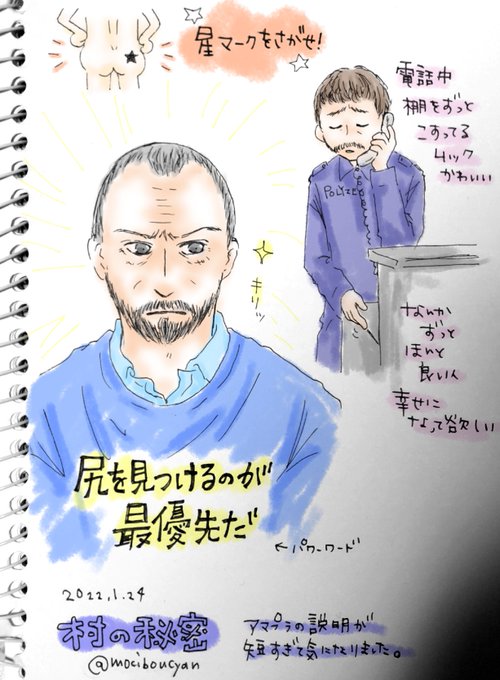 星マークをさがせ!
電話中
棚をずっと
こすってる
ムック
かわいい
POLIZEI
キリッ
なんか
ずっと
ほんと
良い人
幸せに
なって欲しい
尻を見つけるのが
最優先だ
←パワーワード
2022.1.24
村の秘密
@mociboucyan
アマプラの説明が
短すぎて気になりました。